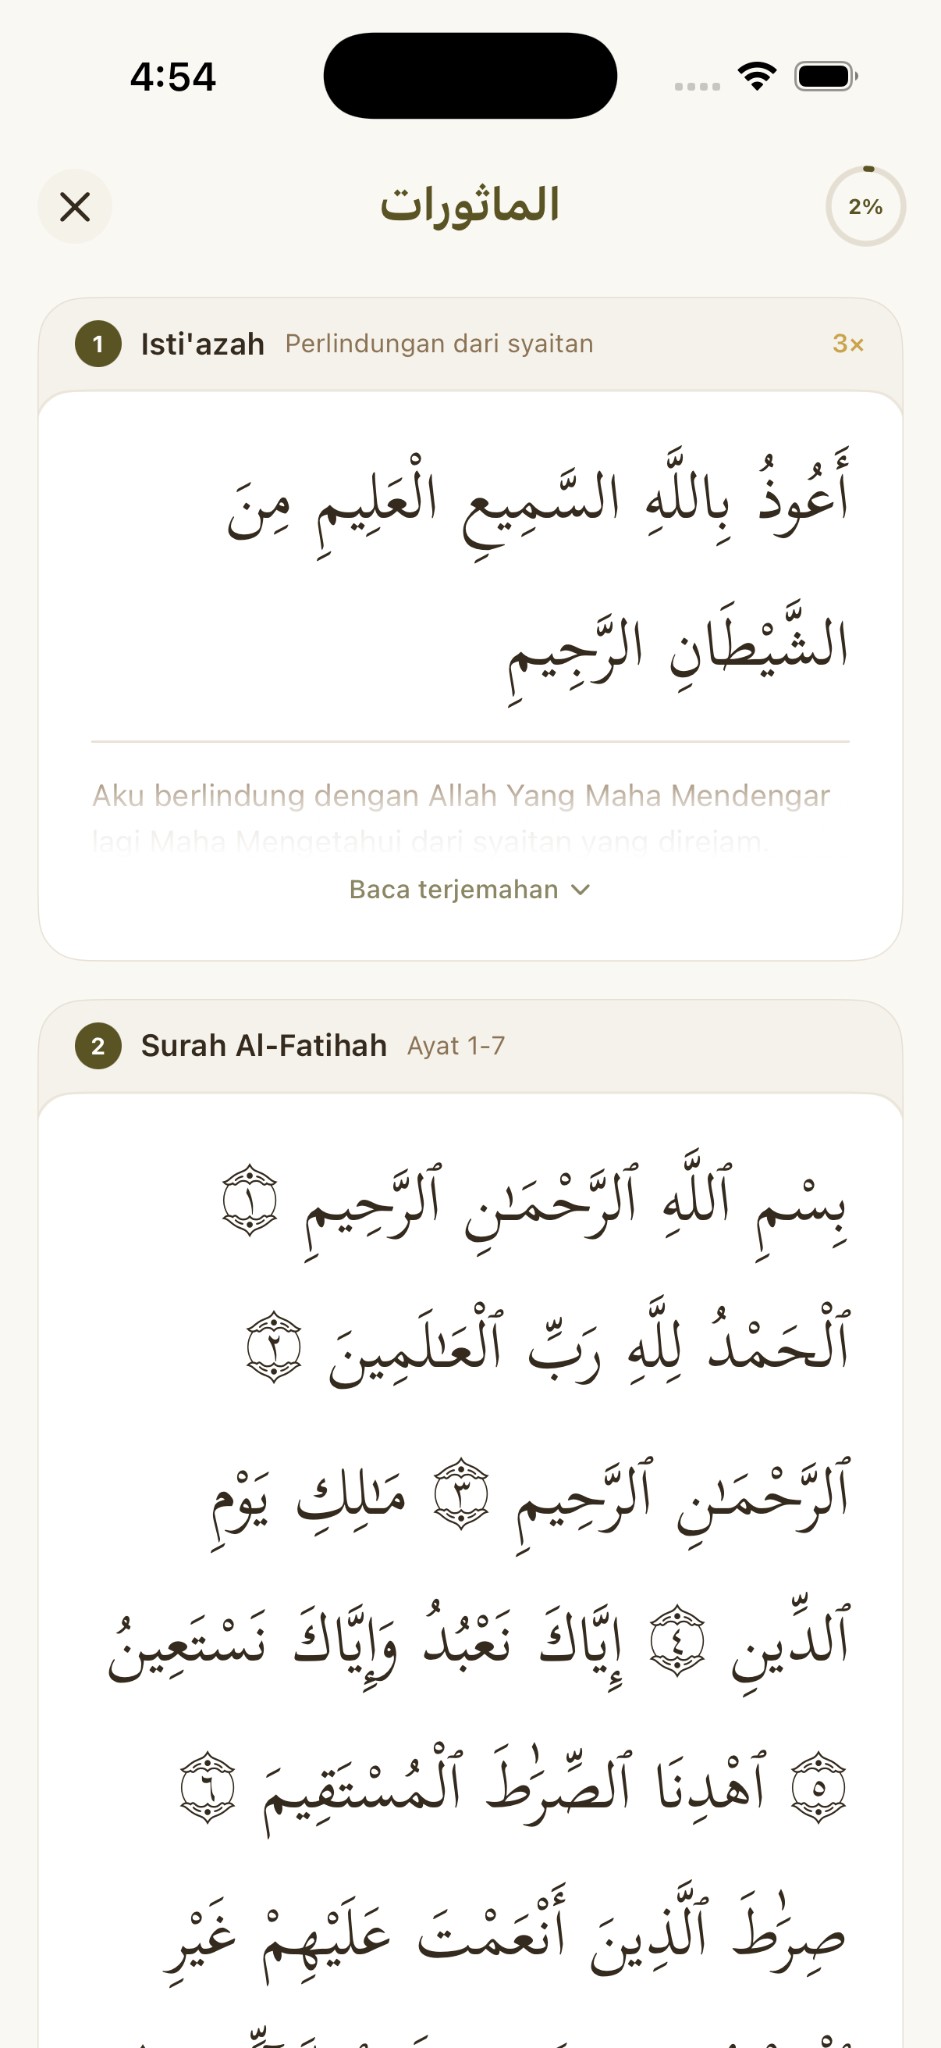 4:54
الماثورات
2%
1 Isti'azah Perlindungan dari syaitan 3×
أَعُوذُ بِاللَّهِ السَّمِيعِ الْعَلِيمِ مِنَ
الشَّيْطَانِ الرَّجِيمِ
Aku berlindung dengan Allah Yang Maha Mendengar
lagi Maha Mengetahui dari syaitan yang direjam.
Baca terjemahan
2 Surah Al-Fatihah Ayat 1-7
بِسْمِ ٱللَّهِ ٱلرَّحْمَـٰنِ ٱلرَّحِيمِ ١
ٱلْحَمْدُ لِلَّهِ رَبِّ ٱلْعَـٰلَمِينَ ٢
ٱلرَّحْمَـٰنِ ٱلرَّحِيمِ ٣ مَـٰلِكِ يَوْمِ
ٱلدِّينِ ٤ إِيَّاكَ نَعْبُدُ وَإِيَّاكَ نَسْتَعِينُ
٥ ٱهْدِنَا ٱلصِّرَٰطَ ٱلْمُسْتَقِيمَ ٦
صِرَٰطَ ٱلَّذِينَ أَنْعَمْتَ عَلَيْهِمْ غَيْرِ